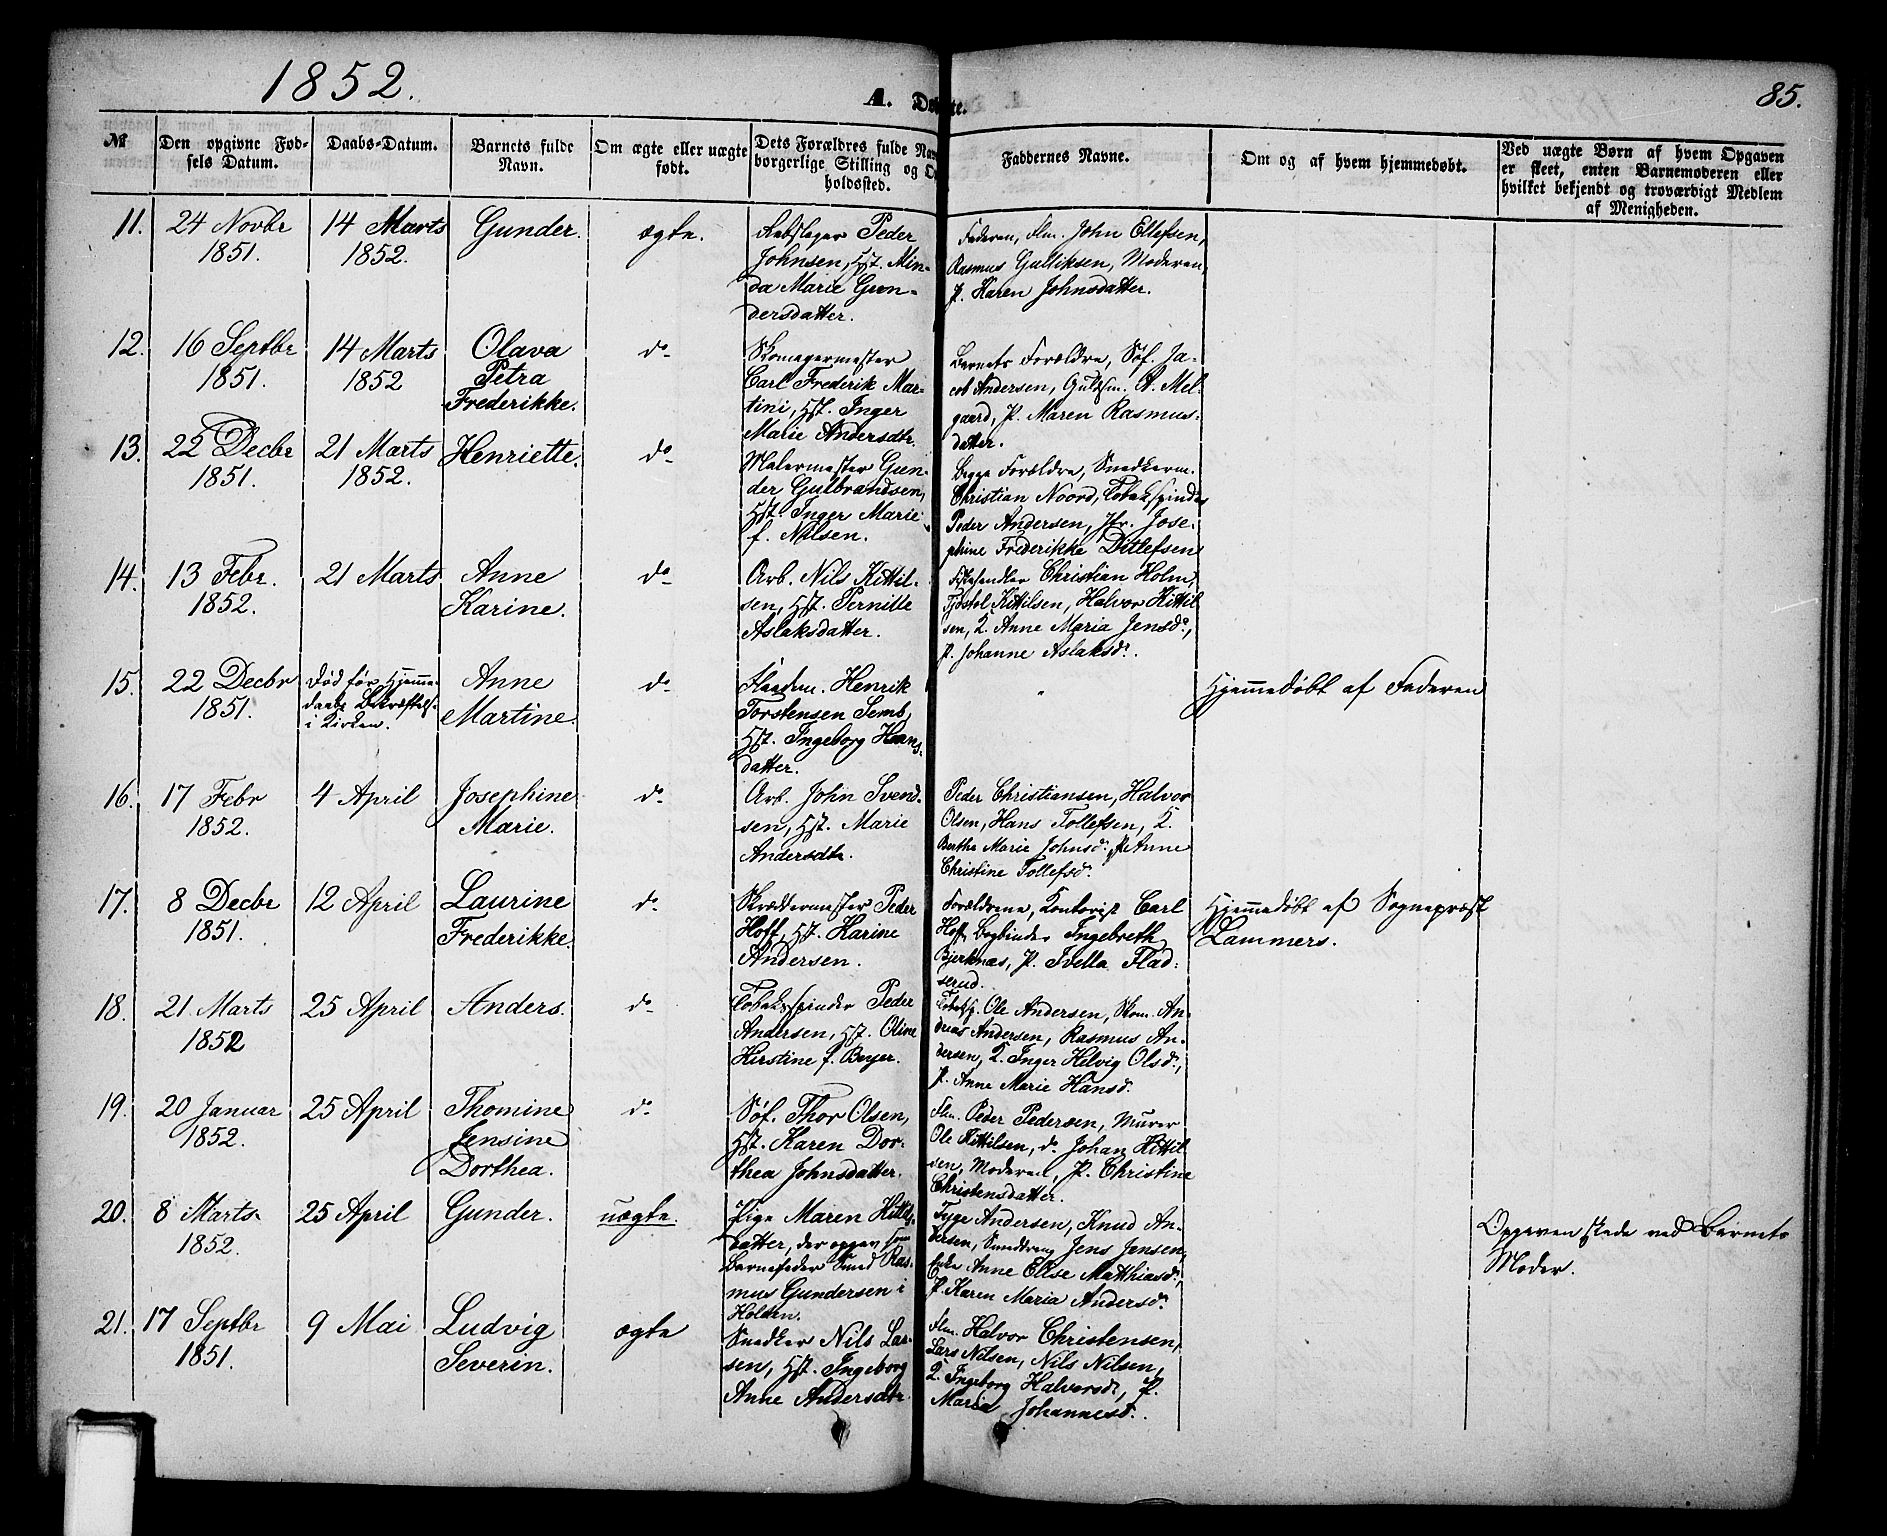 1852.
A. Døbte.
85.
№
Den opgivne Fød-
sels Datum.
Daabs-Datum.
Barnets fulde
Navn.
Om ægte eller uægte
født.
Dets Forældres fulde Nav
borgerlige Stilling og O
holdssted.
Faddernes Navne.
Om og af hvem hjemmedøbt.
Ved uægte Børn af hvem Opgaven
er skeet, enten Barnemoderen eller
hvilket bekjendt og troværdigt Medlem
af Menigheden.
11.
24 Novbr
1851.
14 Marts
1852.
Gunder.
ægte.
Rebslager Peder
Johnsen, Hst. Min-
da Marie Gun-
dersdatter.
Faderen, Flm. John Ellefsen,
Rasmus Gulliksen, Moderen,
P. Karen Johnsdatter.
12.
16 Septbr
1851.
14 Marts
1852
Olava
Petra
Frederikke.
do
Skomagermester
Carl Frederik Mar-
tini, Hst. Inger
Marie Andersdtr.
Barnets Forældre, Søf. Ja-
cob Andersen, Guldsm. A. Mel-
gaard, P. Maren Rasmus-
datter.
13.
22 Decbr
1851.
21 Marts
1852.
Henriette.
do
Malermester Gun-
der Gulbrandsen,
Hst. Inger Marie
f. Nilsen.
Begge Forældre, Snedkerm.
Christian Noord, Tobakspinder
Peder Andersen, Jfr. Jose-
phine Frederikke Ditlefsen
14.
13 Febr.
1852.
21 Marts
Anne
Karine.
do
Arb. Nils Kittil-
sen, Hst. Pernille
Aslaksdatter.
Fiskehandler Christian Holm,
Tjøstol Kittilsen, Halvor Kittil
sen, K. Anne Maria Jensd.,
P. Johanne Aslaksd.
15.
22 Decbr
1851.
Død før Hjemme-
daabs Bekræftels
i Kirken.
Anne
Martine.
do
Flaadm. Henrik
Torstensen Semb,
Hst. Ingeborg Hans-
datter.
"
Hjemmedøbt af Faderen
16.
17 Febr
1852.
4 April
Josephine
Marie.
do
Arb. John Svend-
sen, Hst. Marie
Andersdtr.
Peder Christiansen, Halvor
Olsen, Hans Tollefsen, K.
Berthe Marie Johnsd. P. Anne
Christine Tollefsd.
17.
8 Decbr
1851.
12 April
Laurine
Frederikke.
do
Skræddermester Peder
Hoff, Hst. Karine
Andersen.
Forældrene, Kontorist Carl
Hoff, Bogbinder Ingebreth
Bjerknæs, P. Tvella Flad-
serud.
Hjemmedøbt af Sognepræst
Lammers.
18.
21 Marts
1852
25 April
Anders.
do
Tobakspinder Peder
Andersen, Hst. Oline
Kirstine f. Beyer.
Tobaksp. Ole Andersen, Skom. An-
dreas Andersen, Rasmus An-
dersen, K. Inger Helvig Olsd.,
P. Anne Marie Hansd.
19.
20 Januar
1852.
25 April
Thomine
Jensine
Dorthea.
do
Søf. Thor Olsen,
Hst. Karen Dor-
thea Johnsdatter.
Flm. Peder Pedersen, Murer
Ole Kittilsen, do Johan Kittil
sen, Moderen, P. Christine
Christensdatter.
20.
8 Marts
1852.
25 April
Gunder.
uægte.
Pige Maren Hills-
datter, der opgav som
Barnefader Smed Ras-
mus Gundersen i
Holden.
Tyge Andersen, Knud An-
dersen, Smeddreng Jens Jensen,
Enke Anne Elise Matthiasd.,
P. Karen Maria Andersd.
Opgaven skede ved Barnets
Moder.
21.
17 Septbr
1851.
9 Mai
Ludvig
Severin.
ægte
Snedker Nils Lar-
sen, Hst. Ingeborg
Anne Andersdtr.
Flm. Halvor Christensen,
Lars Nilsen, Nils Nilsen,
K. Ingeborg Halvorsd., P.
Maria Johannesd.